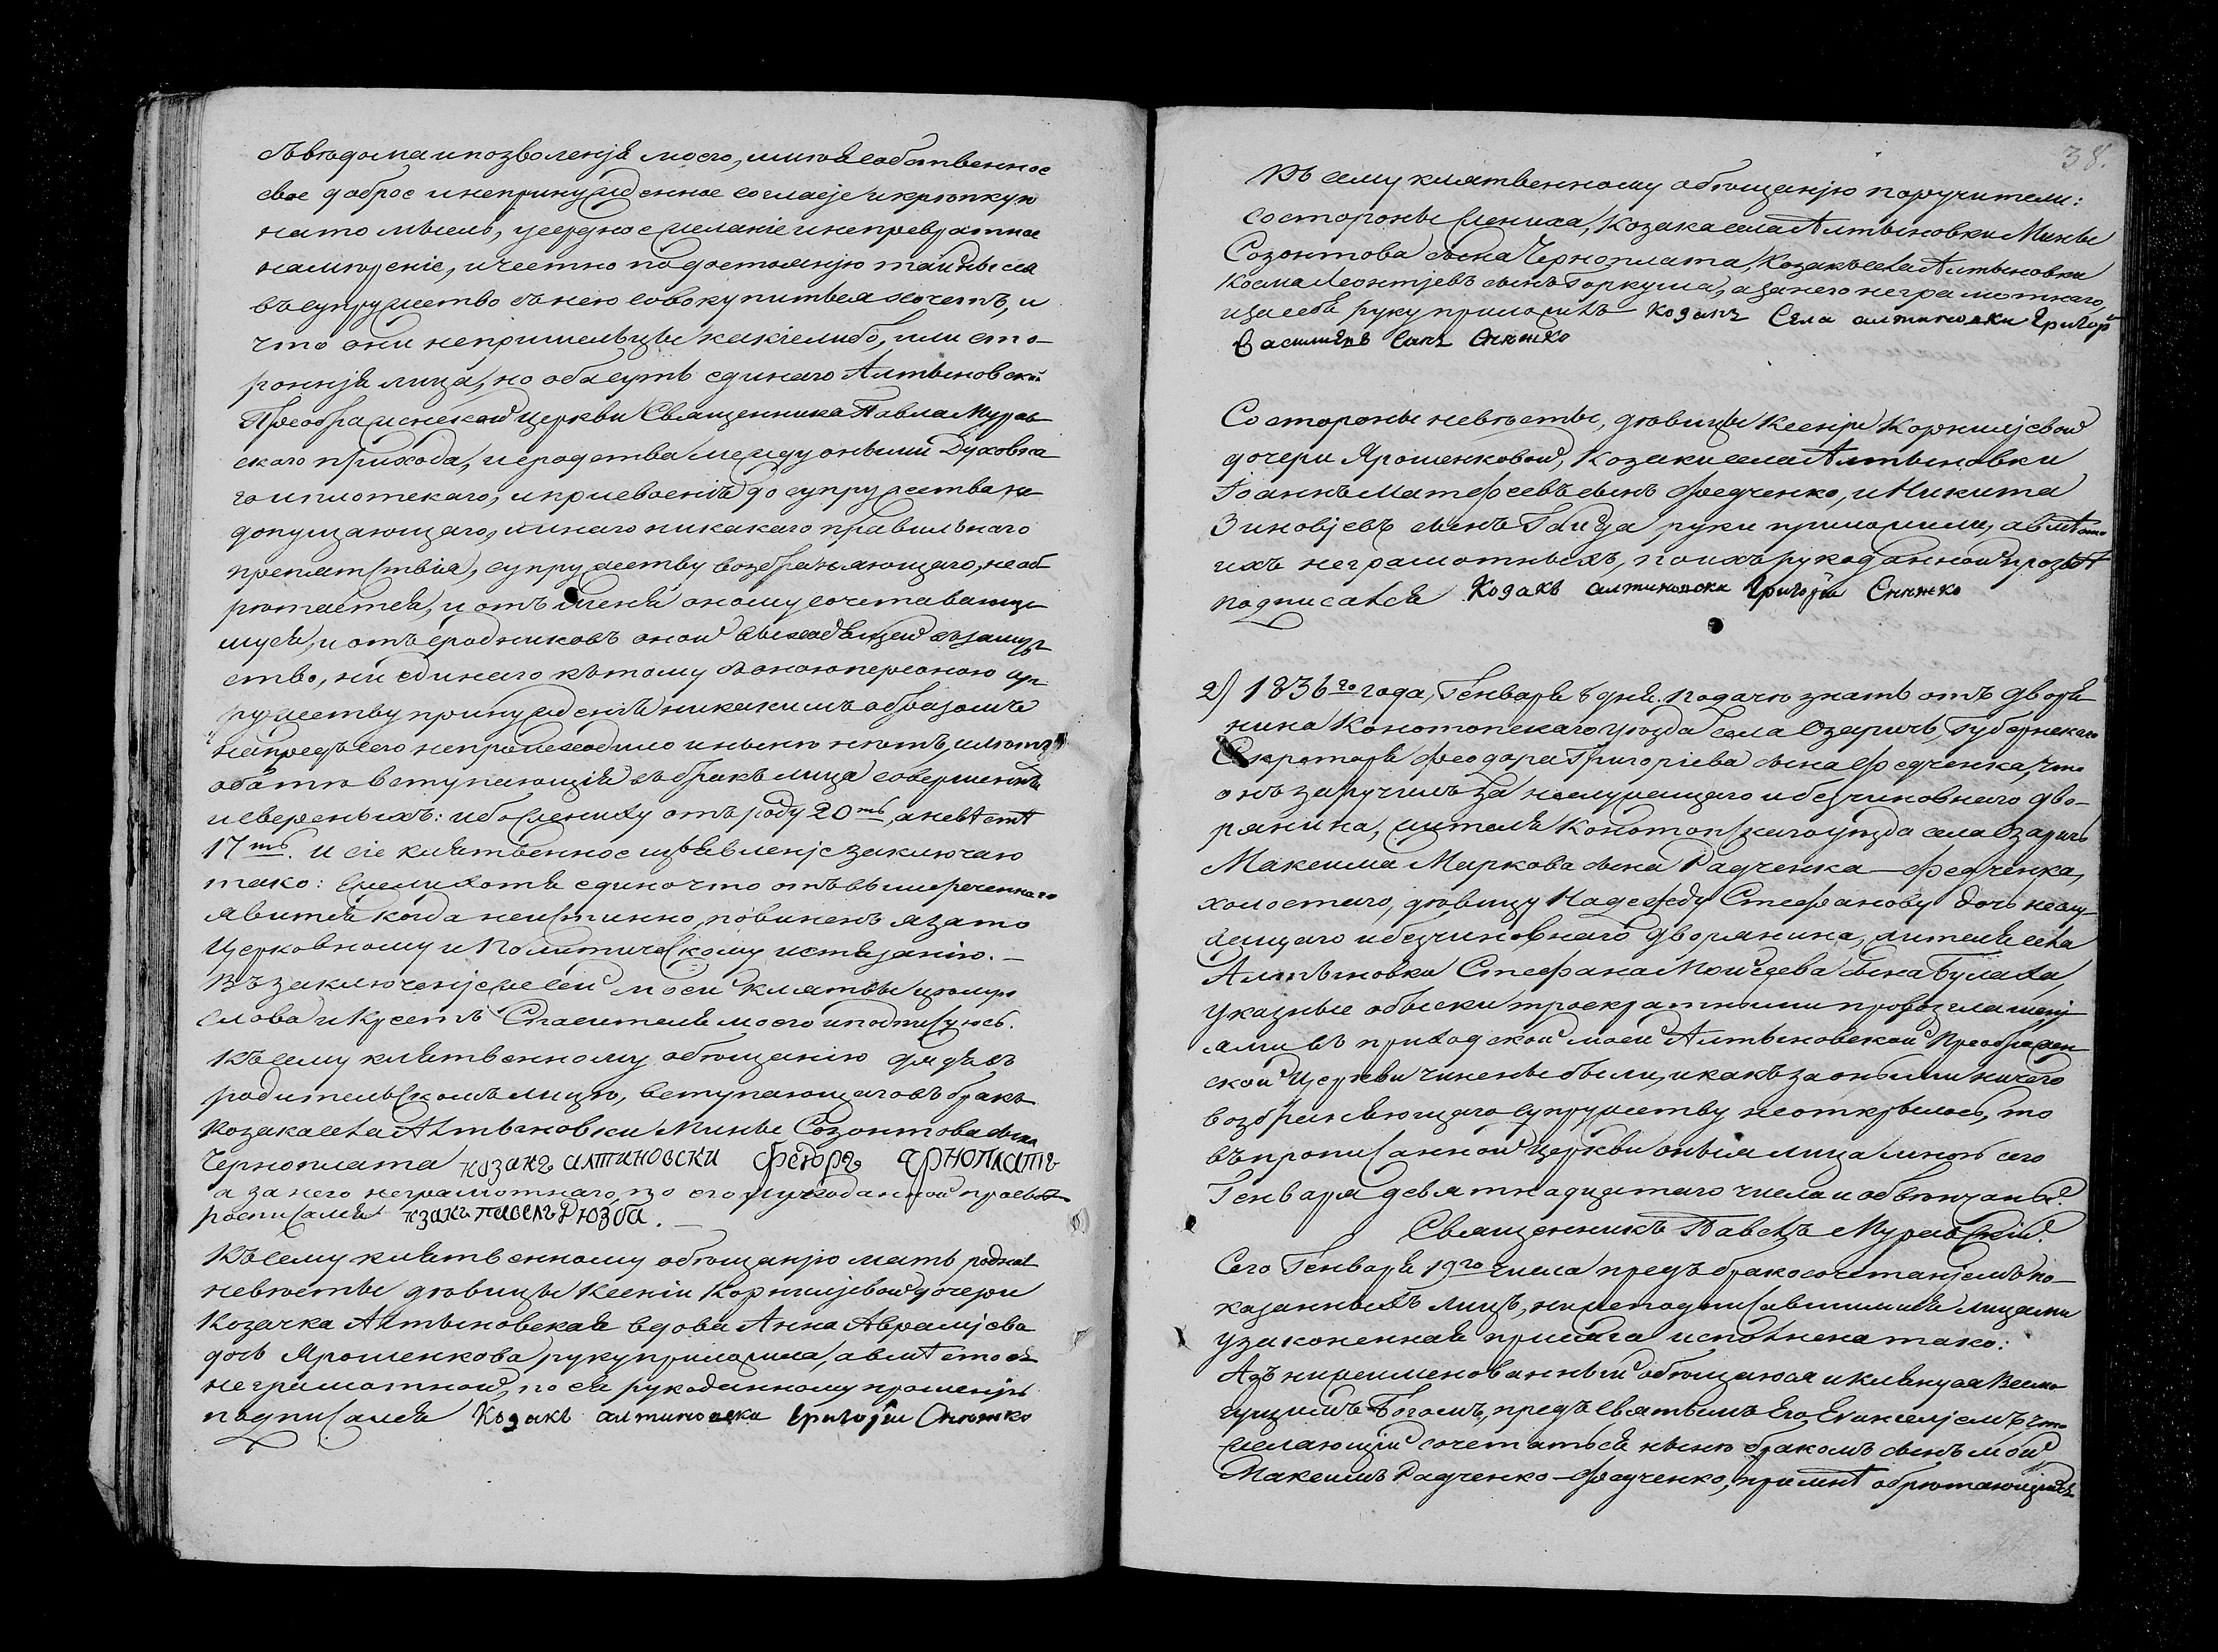 съ вѣдома и позволенія моего, имѣя собственное
свое доброе и непринужденное согласіе и крѣпкую
на то мысль, усердное желаніе и непревратное
намѣреніе, и честно по достоянію тайны сея
въ супружество съ нею совокупиться хочетъ, и
что они непришельцы какіе либо, или сто-
роннія лица, но оба суть единаго Алтыновской
Преображенской церкви Священника Павла Мурав-
скаго прихода, и сродства между оными Духовна
го и плотскаго, и присвоенія до супружества не
допущающаго, и инаго никакаго правильнаго
препятствія, супружеству возбраняющаго, необ-
рѣтается, и отъ меня оному сочетавающе-
муся, и отъ сродниковъ оной выходящей въ замуж-
ство, ни единаго къ тому съ оною персоною суп-
ружеству принужденія никакимъ образомъ
напредъ сего непроисходило и нынѣ нѣтъ, имѣютъ
оба то вступающія въ бракъ лица совершенны
и сверсныхъ: ибо жениху отъ роду 20ть, а невѣстѣ
17ть. И сіе клятвенное изъявленіе заключаю
тако: Ежели хотя едино что отъ вышереченнаго
явится когда неистинно, повиненъ я за то
Церковному и Политическому истязанію. –
Въ заключеніе же сей моей клятвы цѣлую
слова и Крестъ Спасителя моего и подписуюсь.
Къ сему клятвенному обѣщанію дядя въ
родительскомъ лицѣ, вступающаго въ бракъ
козака села Алтыновки Мины Созонтова сына
Черноплата козакъ алтиновски Феюоръ Чрноплатъ
а за него неграмотнаго, по его рукоданной прозьбѣ
росписался кзакъ павелъ Дюзба. –
Къ сему клятвенному обѣщанію мать родная
невѣсты дѣвицы Ксеніи Корнилѣевой дочери
Козачка Алтыновская вдова Анна Аврамѣева
дочь Ярошенкова, руку приложила, а вмѣсто ея
неграмотной, по ея рукоданному прошенію
подписался Козакъ алтиновски Григорій Снѣжко
38.
Къ сему клятвенному обѣщанію поручители:
Со стороны жениха, козака села Алтыновки Мины
Созонтова сына Черноплата, козакъ села Алтыновки
Косма Леонтіевъ сынъ Горкуша, а за него неграмотнаго,
и за себя руку приложилъ Козакъ Села алтиновки Григорй
Василиевъ синъ Снѣжко
Со стороны невѣсты, дѣвицы Ксеніи Корниліевой
дочери Ярошенковой, Козаки села Алтыновки
Іоаннъ Матфеевъ сынъ Федченко, и Никита
Зиновіевъ сынъ руки приложили, а вмѣсто
ихъ неграмотныхъ, по ихъ рукоданной прозьбѣ
подписался Козакъ алтиновски Григорій Снѣжко
2) 1836го года, Генваря 6 дня. Подачею знать отъ дворя-
нина Конотопскаго уѣзда села Озаричъ, Губернскаго
Секретаря Феодора Григоріева сына Федченка, что
онъ заручилъ за неслужащаго и безчиновнаго дво-
рянина, жителя Конотопскаго уѣзда села Озаричъ
Максима Маркова сына Радченка – Федченка,
холостаго, дѣвицу Надежду Стефанову дочь неслу-
жащаго и безчиновнаго дворянина, жителя села
Алтыновки Стефана Моисеева сына Булаха,
указные обыски троекратными провозглашені-
ями въ приходской моей Алтыновской Преображен-
ской Церкви чинены были, и какъ за оными ничего
возбраняющаго супружеству неоткрылось, то
въ прописанной Церкви оныя лица мною сего
Генваря девятнадцатаго числа и обвѣнчаны.
Священникъ Павелъ Муравскій.
Сего Генваря 19го числа предъ бракосочетаніемъ по-
казанныхъ лицъ, нижеподписавшимися лицами
узаконенная присяга исполнена тако:
Азъ нижеименованный обѣщаюся и клянуся Всемо-
гущимъ Богомъ, предъ святымъ Его, Евангеліемъ что
желающій сочетаться нынѣ бракомъ сынъ мой
Максимъ Радченко – Федченко, при мнѣ обрѣтающійся